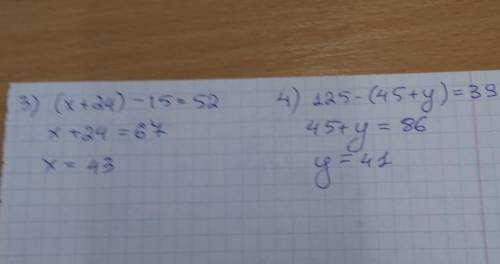 3) (x+24) - 15 = 52
x + 24 = 67
x = 43
4) 125 - (45+y) = 39
45+y = 86
y = 41